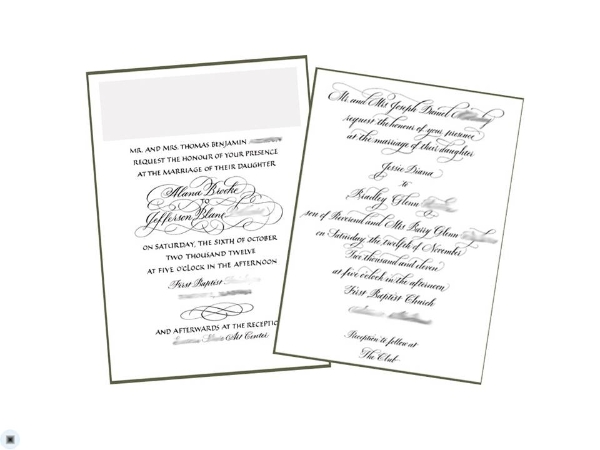 MR. AND MRS. THOMAS BENJAMIN
REQUEST THE HONOUR OF YOUR PRESENCE
AT THE MARRIAGE OF THEIR DAUGHTER
Alana Brooke
TO
Jefferson Blane
ON SATURDAY, THE SIXTH OF OCTOBER
TWO THOUSAND TWELVE
AT FIVE O'CLOCK IN THE AFTERNOON
First Baptist
AND AFTERWARDS AT THE RECEPTIO
Art Center
Mr. and Mrs. Joseph Daniel
request the honour of your presence
at the marriage of their daughter
Jessie Diana
to
Bradley Glenn
son of Reverend and Mrs. Barry Glenn
on Saturday, the twelfth of November
Two thousand and eleven
at five o'clock in the afternoon
First Baptist Church
Reception to follow at
The Club